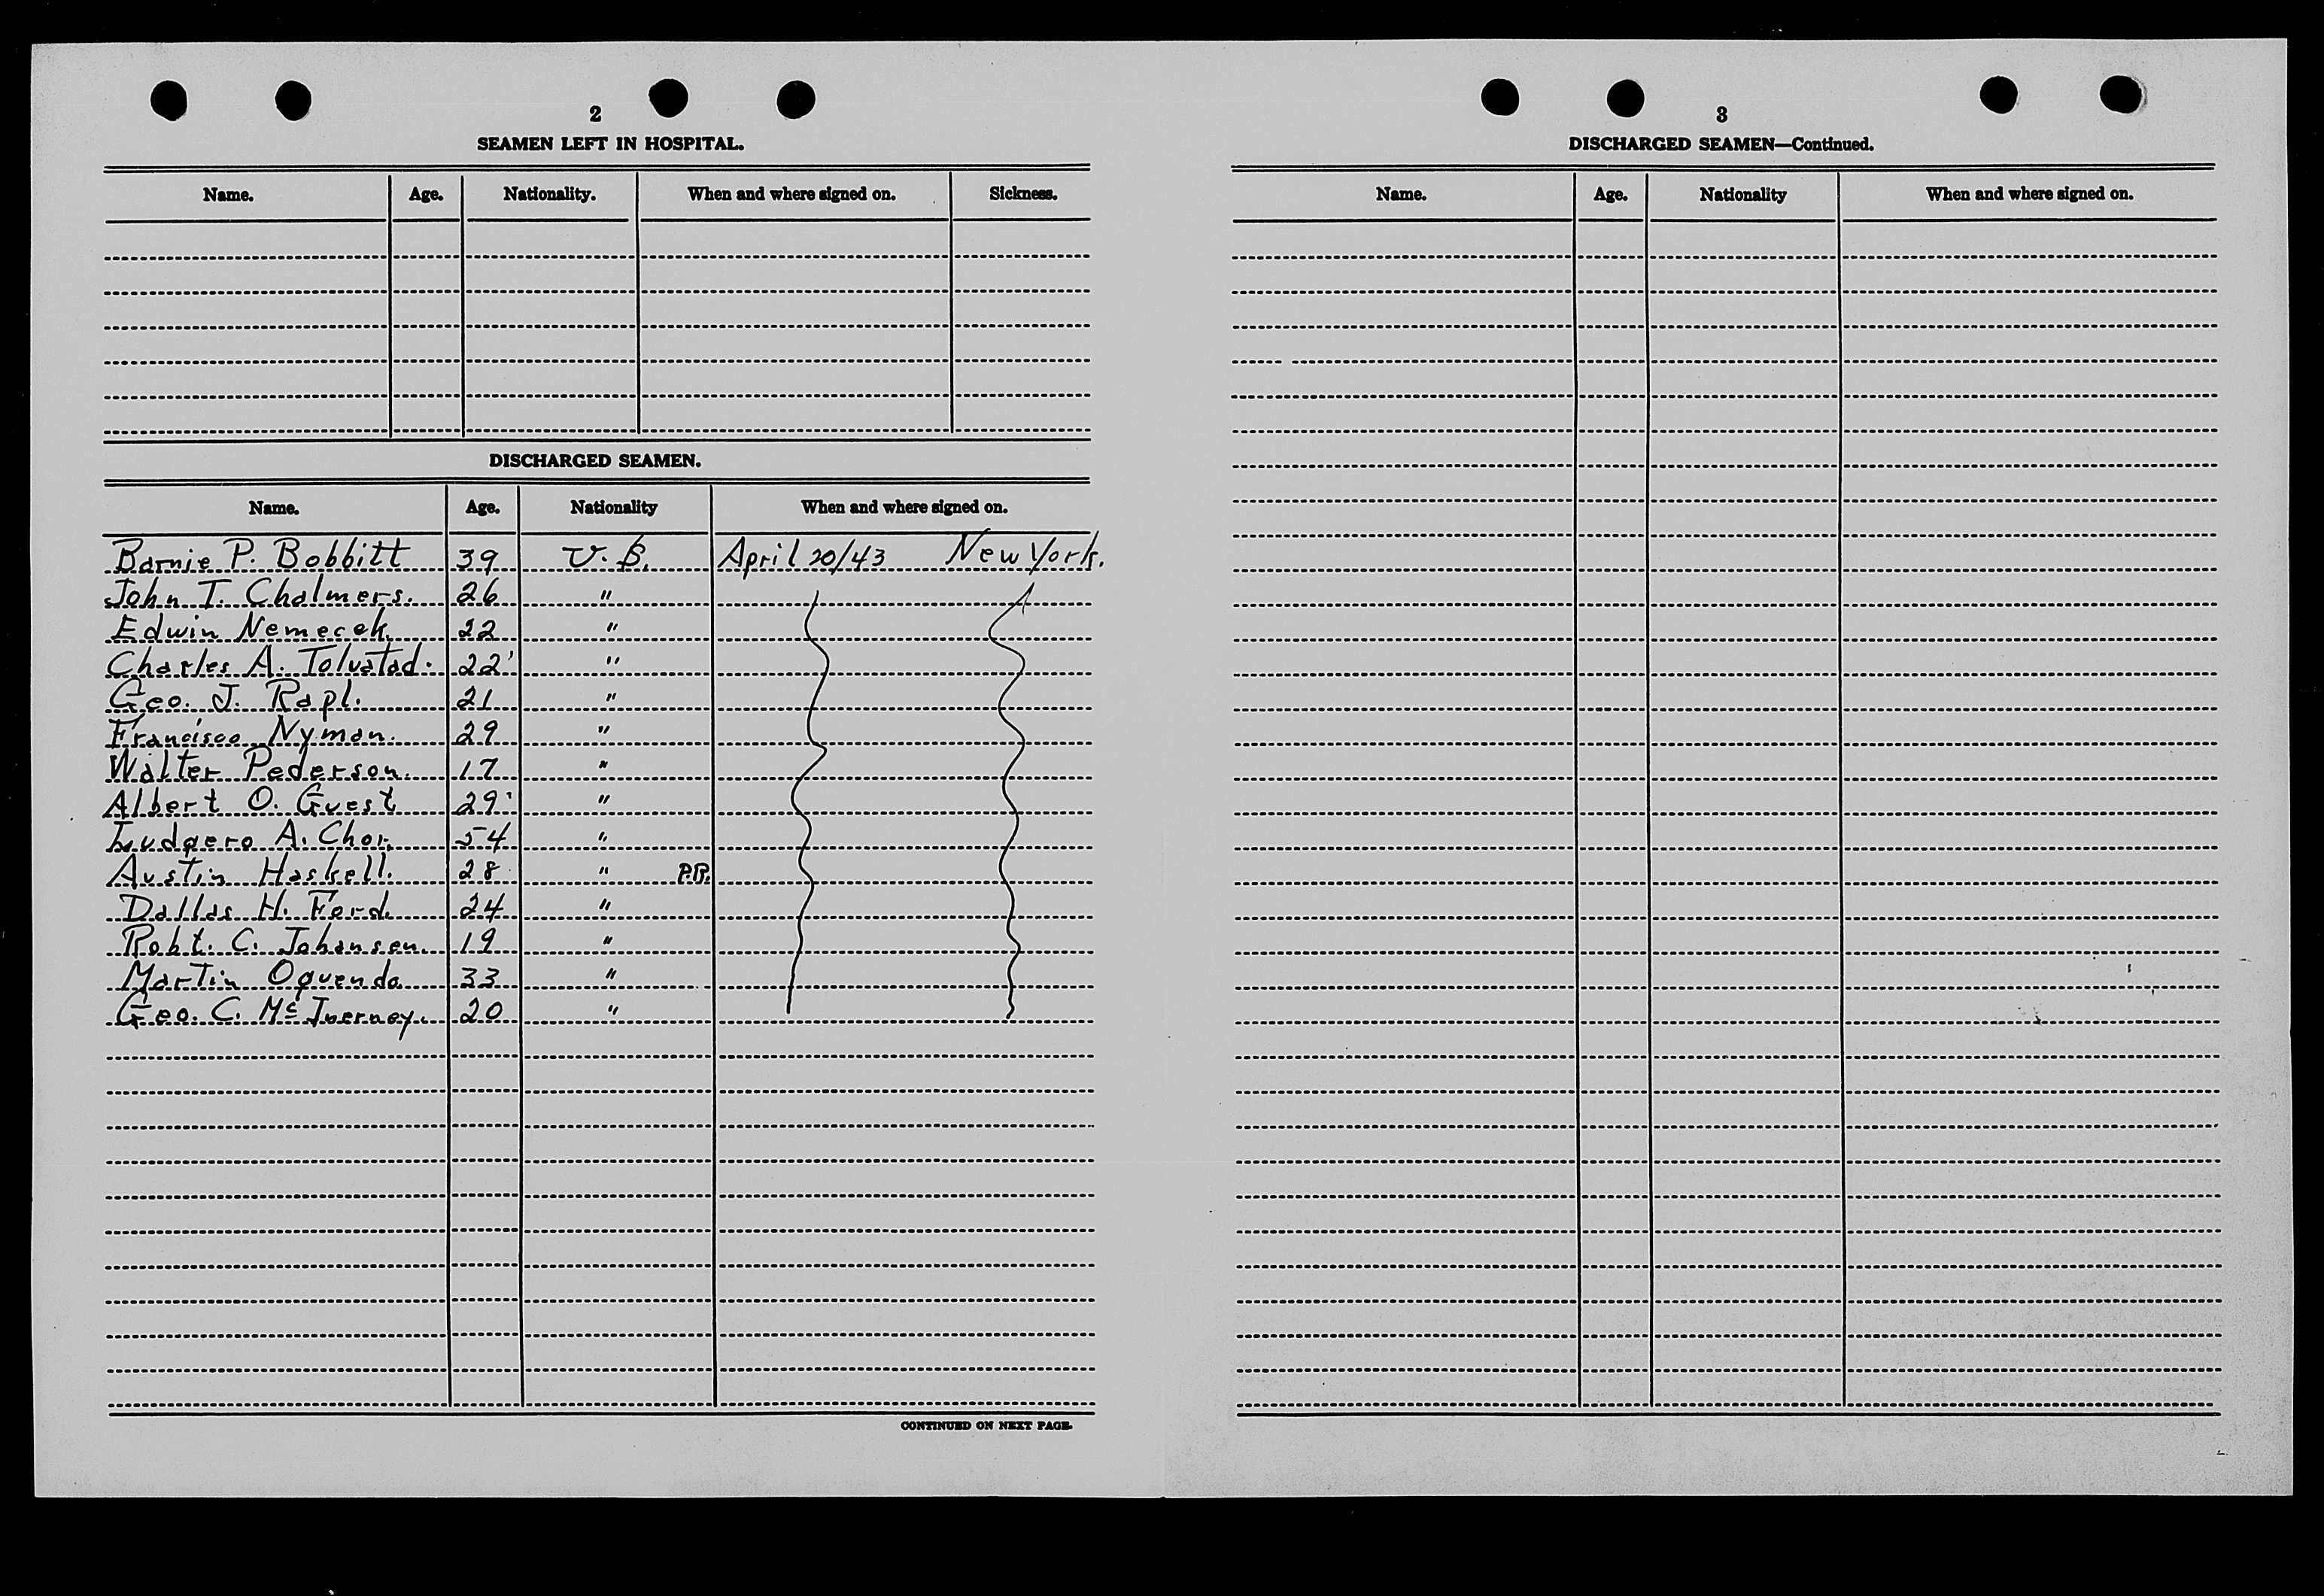 2
SEAMEN LEFT IN HOSPITAL.
Name. Age. Nationality. When and where signed on. Sickness.
DISCHARGED SEAMEN.
Name. Age. Nationality When and where signed on.
Barnie P. Bobbitt 39 U.S. April 20/43 New York.
John T. Chalmers. 26 "
Edwin Nemecek. 22 "
Charles A. Tolvstad. 22 "
Geo. J. Rapl. 21 "
Francisco Nyman. 29 "
Walter Pederson. 17 "
Albert O. Guest 29 "
Ludgero A. Chor. 54 "
Austin Haskell. 28 " P.R.
Dallas H. Ford. 24 "
Robt. C. Johansen. 19 "
Martin Oquendo 33 "
Geo. C. McInerney. 20 "
CONTINUED ON NEXT PAGE.
3
DISCHARGED SEAMEN—Continued.
Name. Age. Nationality When and where signed on.